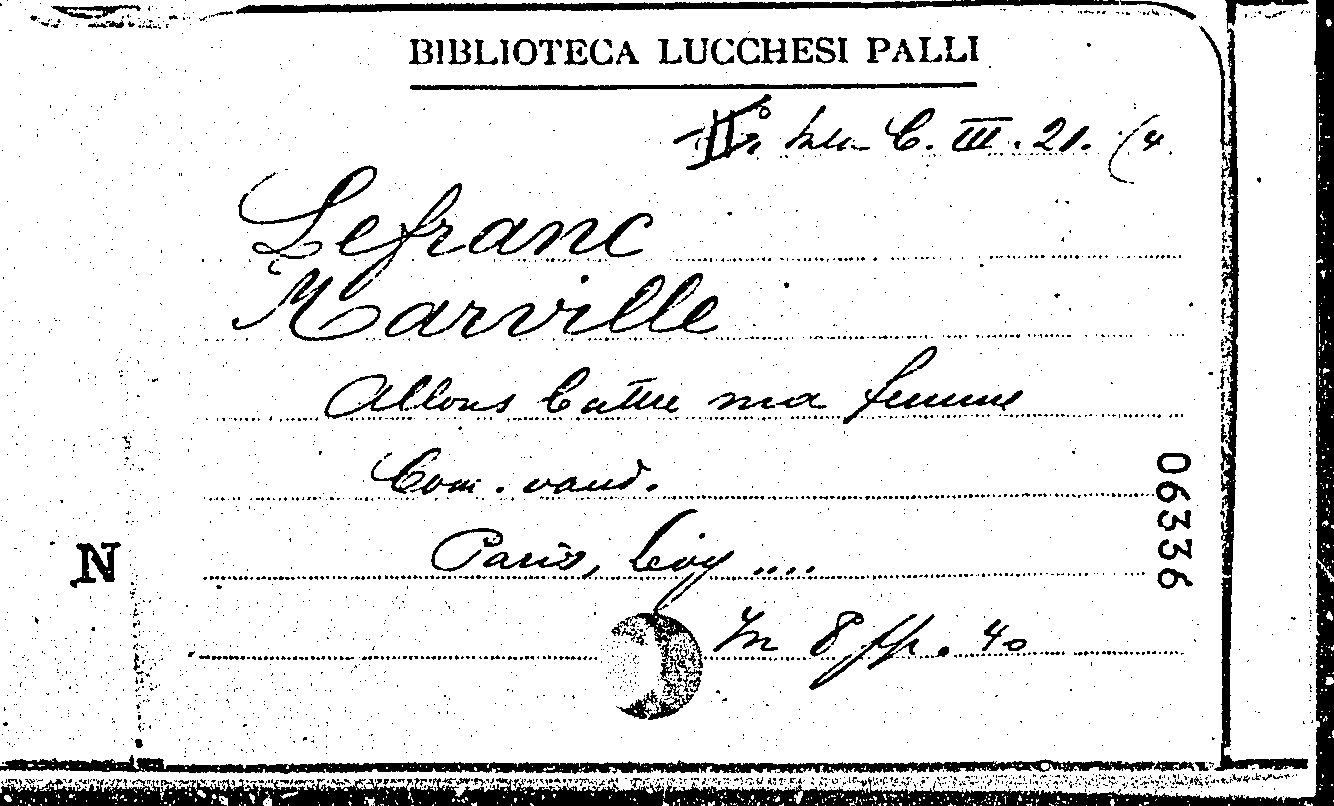 BIBLIOTECA LUCCHESI PALLI
C. III. 21. (4
Lefranc
Marville
Allons battre ma femme
Com. vaud.
Paris, Lévy ....
In 8 pp. 40
N
06336